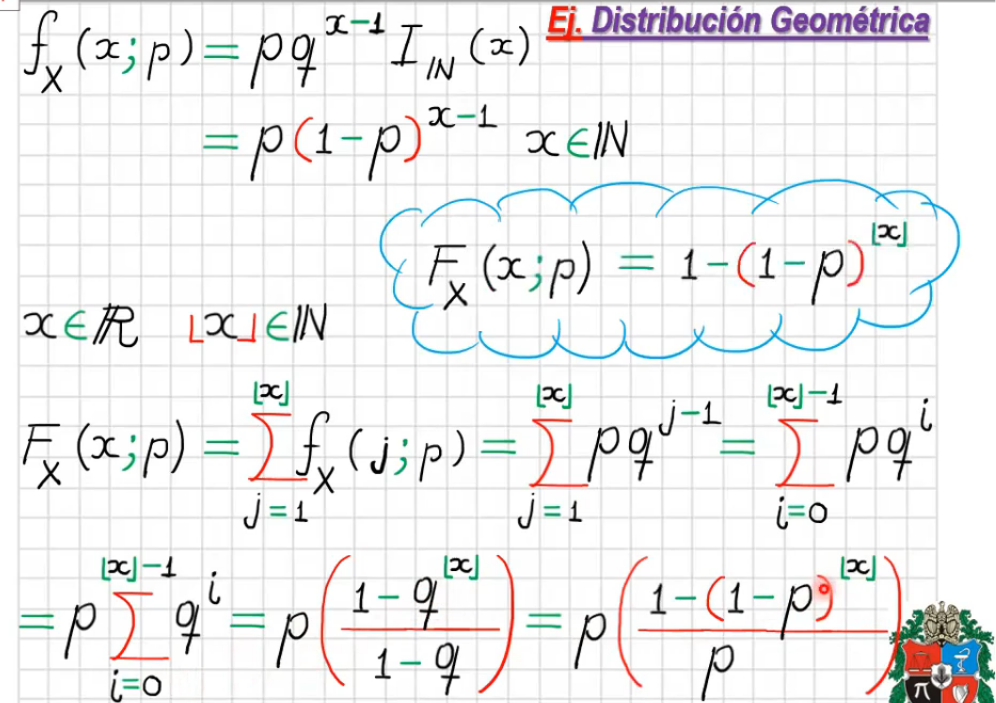 Ej. Distribución Geométrica
f_X(x;p) = pq^{x-1} I_{ℕ}(x)
= p(1-p)^{x-1} x∈ℕ
F_X(x;p) = 1-(1-p)^{⌊x⌋}
x∈ℝ ⌊x⌋∈ℕ
F_X(x;p) = ∑_{j=1}^{⌊x⌋} f_X(j;p) = ∑_{j=1}^{⌊x⌋} pq^{j-1} = ∑_{i=0}^{⌊x⌋-1} pq^i
= p ∑_{i=0}^{⌊x⌋-1} q^i = p((1-q^{⌊x⌋})/(1-q)) = p((1-(1-p)^{⌊x⌋})/p)
π